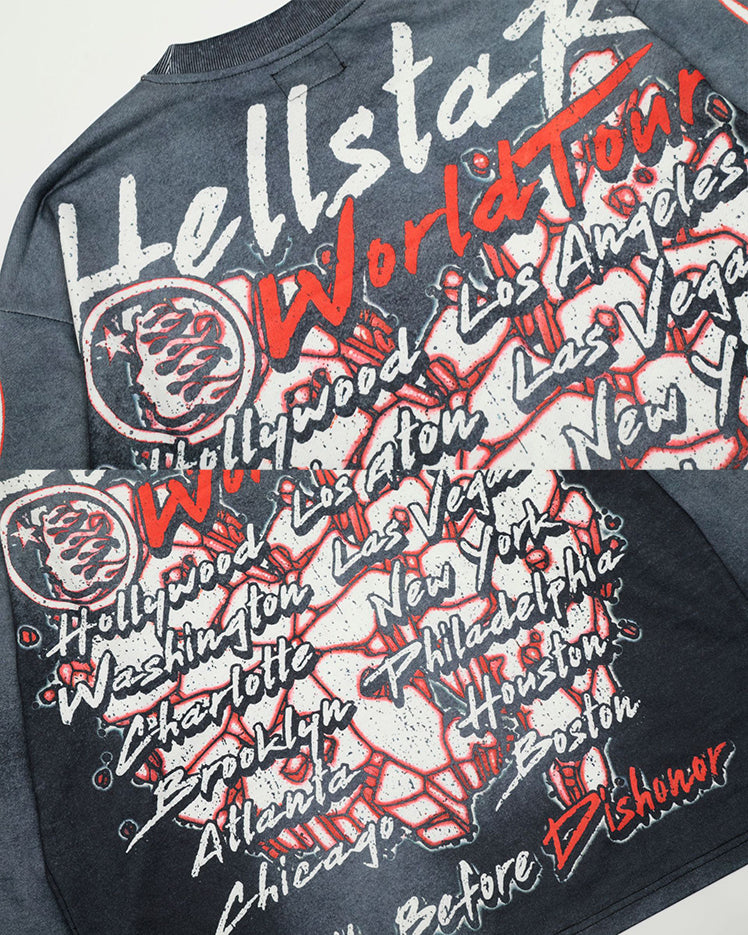 Hellstar
World Tour
Hollywood Los Angeles
Las Vega
New Y
Wo
Hollywood Los
Washington Las Vegas
Charlotte New York
Brooklyn Philadelphia
Atlanta Houston
Chicago Boston
Before Dishonor